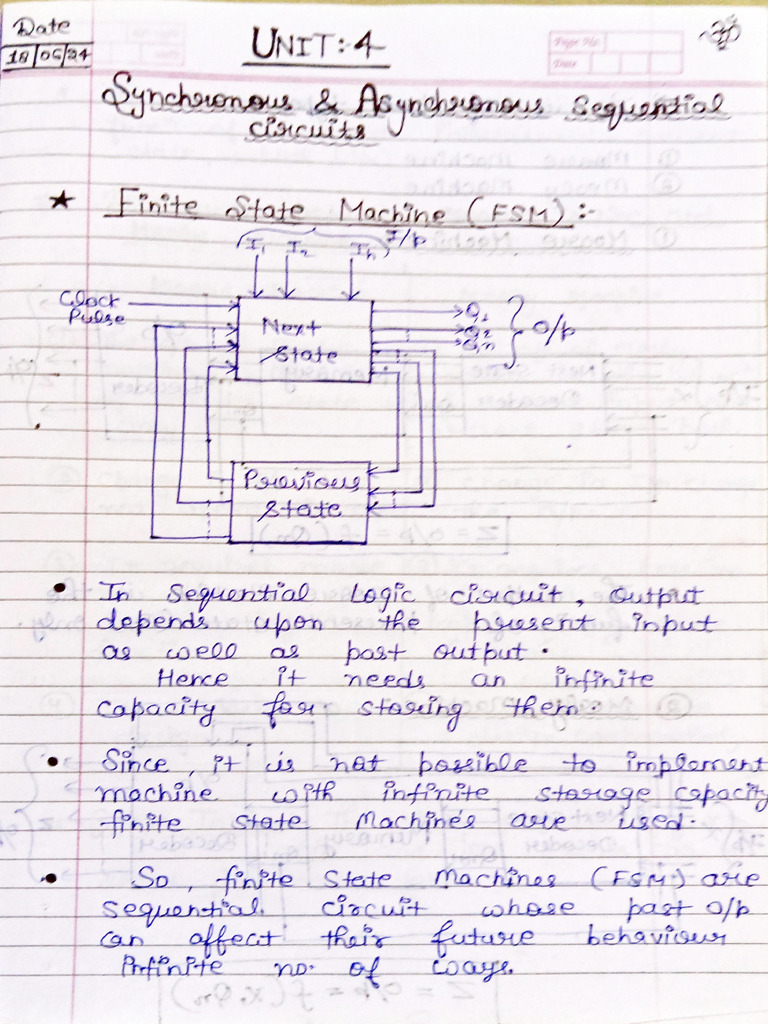 Date
18/06/24
UNIT:-4
Page No.
Date
Synchronous & Asynchronous Sequential
circuits
★ Finite State Machine (FSM) :-
I₁ I₂ In I/p
Clock
Pulse
Next
State
O₁
O₂
On
O/p
Previous
State
• In sequential logic circuit, output
depends upon the present input
as well as past output.
Hence it needs an infinite
capacity for storing them.
• Since, it is not possible to implement
machine with infinite storage capacity
finite state Machines are used.
• So, finite State Machines (FSM) are
sequential circuit whose past o/p
can affect their future behaviour
Infinite no. of ways.